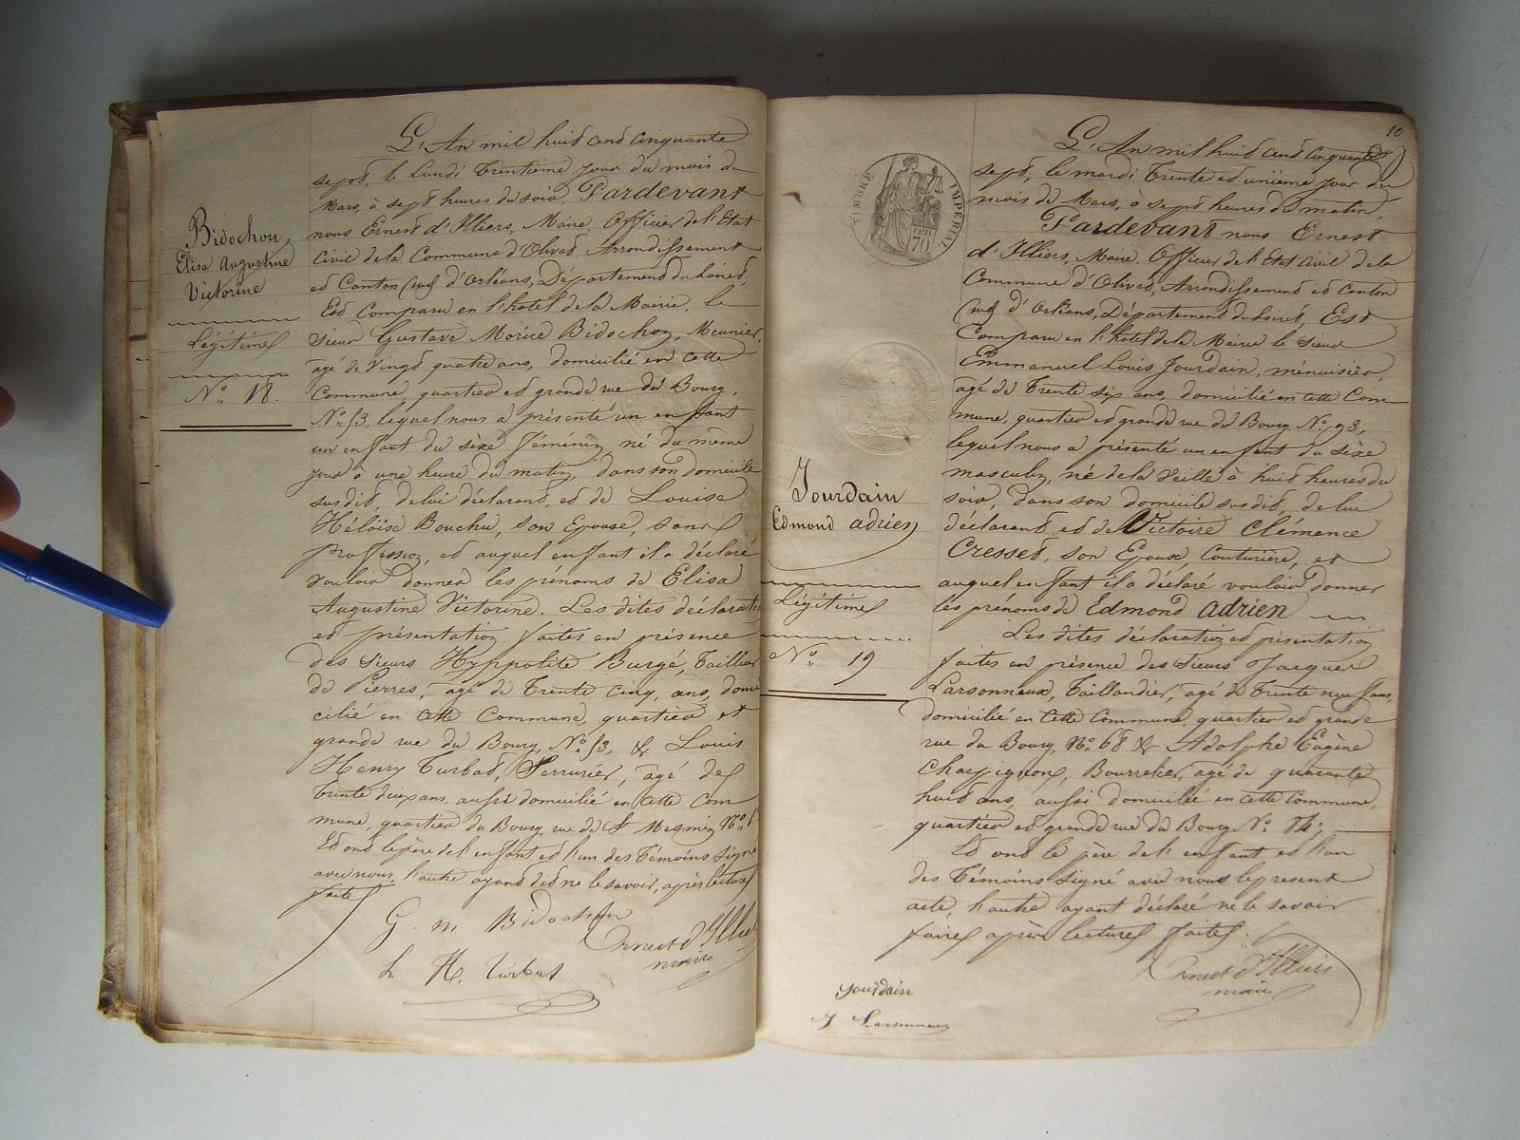 Bidochon,
Elisa Augustine
Victorine
Légitime
N° 18.
L'An mil huit cent cinquante
sept, le lundi trentième jour du mois de
Mars, à sept heures du soir, Pardevant
nous Ernest d'Illiers, Maire, Officier de l'Etat
Civil de la Commune d'Olivet, Arrondissement
et Canton Sud d'Orléans, Département du Loiret,
Est Comparu en l'hotel de la Mairie, le
sieur Gustave Moïse Bidochon, Meunier,
agé de vingt quatre ans, domicilié en cette
Commune, quartier et grande rue du Bourg,
N° 53, lequel nous a présenté un enfant
un enfant du sèxe féminin, né du même
jour à une heure du matin, dans son domicile
susdit, de lui déclarant, et de Louise
Héloïse Bouchu, son Epouse, sans
profession, et auquel enfant il a déclaré
vouloir donner les prénoms de Elisa
Augustine Victorine. Les dites déclaration
et présentation faites en présence
des sieurs Hyppolite Burgé, Tailleur
de Pierres, agé de trente cinq ans, domi
cilié en cette Commune, quartier et
grande rue du Bourg, N° 53, & Louis
Henry Turbat, Serrurier, agé de
trente deux ans, aussi domicilié en cette Com
mune, quartier du Bourg, rue de St Mesmin N°
Et ont le père de l'enfant et l'un des témoins signé
avec nous, l'autre ayant dit ne le savoir, après lecture
faite
G. m. Bidochon
Ernest d'Illiers
maire
L H. Turbat
10
TIMBRE IMPÉRIAL
70
Jourdain
Edmond adrien
Légitime
N° 19
L'An mil huit cent cinquante
sept, le mardi trente et unième jour du
mois de Mars, à sept heures du matin,
Pardevant nous Ernest
d'Illiers, Maire, Officier de l'Etat Civil de la
Commune d'Olivet, Arrondissement et Canton
Sud d'Orléans, Département du Loiret, Est
Comparu en l'hotel de la Mairie le sieur
Emmanuel Louis Jourdain, ménuisier,
agé de trente six ans, domicilié en cette Com
mune, quartier et grande rue du Bourg N° 93,
lequel nous a présenté un enfant du sèxe
masculin, né de la veille à huit heures du
soir, dans son domicile susdit, de lui
déclarant, et de Victoire Clémence
Cresset, son Epouse, Couturière, et
auquel enfant il a déclaré vouloir donner
les prénoms de Edmond adrien
Les dites déclaration et présentation
faites en présence des sieurs Jacques
Larsonneux, Taillandier, agé de trente neuf ans,
domicilié en cette Commune, quartier et grande
rue du Bourg, N° 68 & Adolphe Eugène
Charpignon, Bourrelier, agé de quarante
huit ans, aussi domicilié en cette Commune,
quartier et grande rue du Bourg N° 84;
Et ont le père de l'enfant et l'un
des témoins signé avec nous le present
acte, l'autre ayant déclaré ne le savoir
faire après lecture faite.
Ernest d'Illiers
maire
Jourdain
J Larsonneux